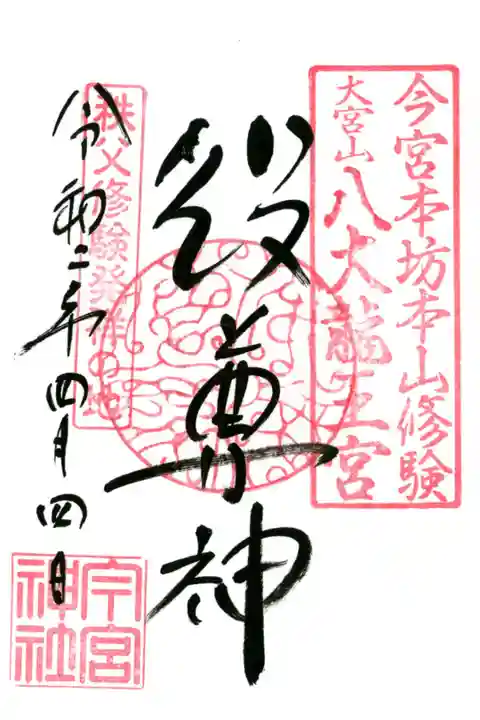 今宮本坊本山修験
大宮山
八大龍王宮
役尊神
秩父修験発祥の地
令和二年四月四日
今宮
神社